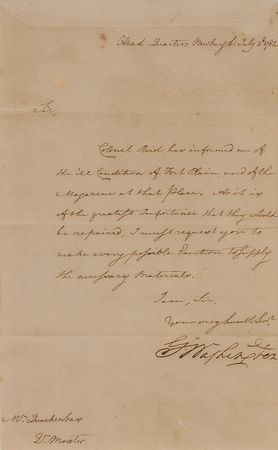 Head Quarters Newburgh July 3d 1782
Sir
Colonel Reid has informed me of
the ill Condition of Fort Plain and of the
Magazine at that Place. As it is
of the greatest Importance that they should
be repaired, I must request you to
make every possible Exertion to supply
the necessary Materials.
I am, Sir,
Your very humble Servt
Go Washington
Mr Quackenbos
Dr Master